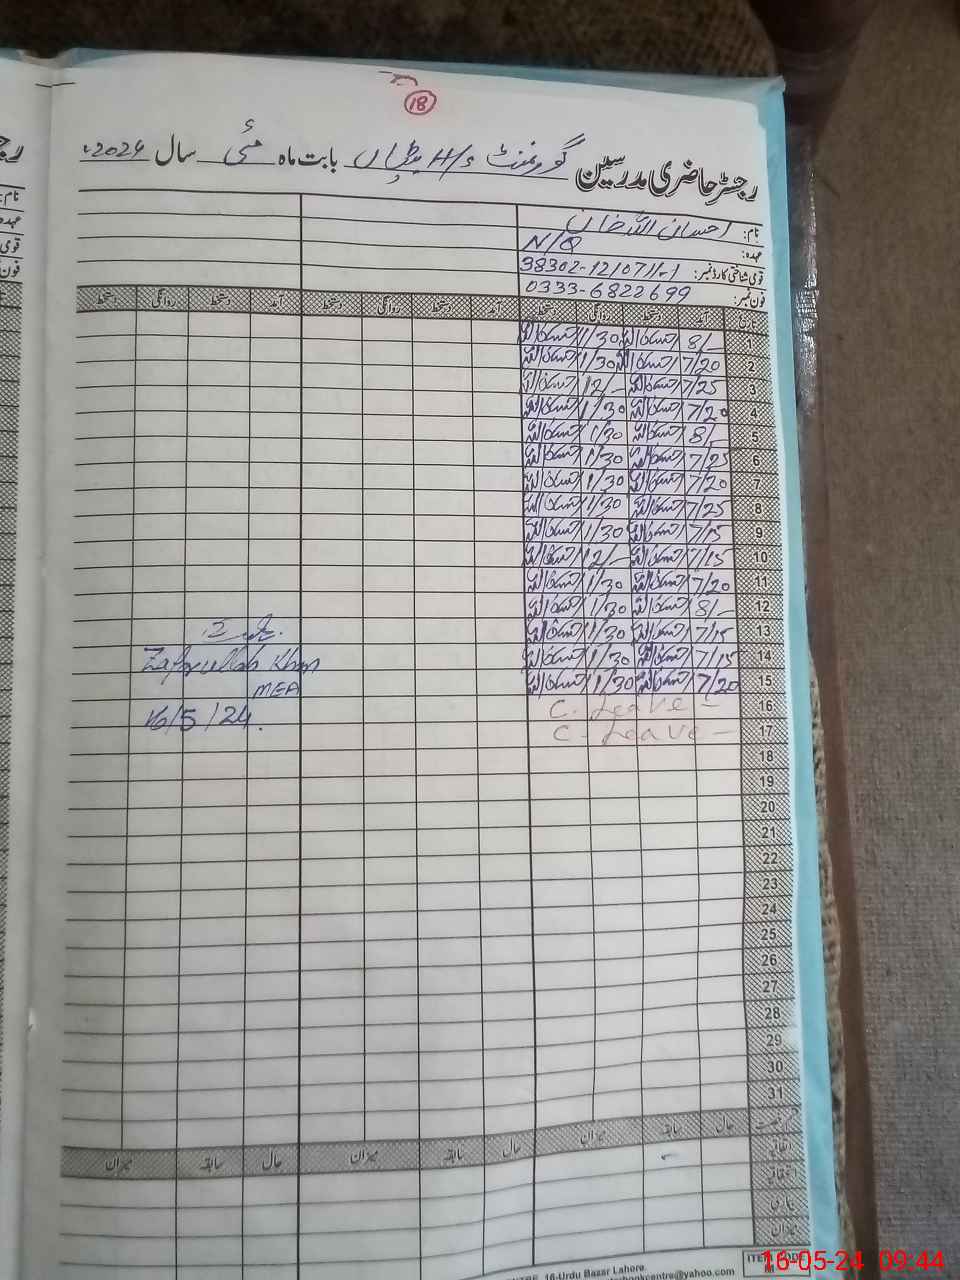 18
رجسٹر حاضری مدرسین گورنمنٹ H/S بابت ماہ مئی سال 2024ء
نام: احسان اللہ خان
عہدہ: N/Q
قومی شناختی کارڈ نمبر: 38302-1210711-1
فون نمبر: 0333-6822699
آمد دستخط روانگی دستخط آمد دستخط روانگی دستخط آمد دستخط روانگی دستخط
1 8/- احسان اللہ 1/30 احسان اللہ
2 7/20 احسان اللہ 1/30 احسان اللہ
3 7/25 احسان اللہ 12/- احسان اللہ
4 7/20 احسان اللہ 1/30 احسان اللہ
5 8/- احسان اللہ 1/30 احسان اللہ
6 7/25 احسان اللہ 1/30 احسان اللہ
7 7/20 احسان اللہ 1/30 احسان اللہ
8 7/25 احسان اللہ 1/30 احسان اللہ
9 7/15 احسان اللہ 1/30 احسان اللہ
10 7/15 احسان اللہ 12/- احسان اللہ
11 7/20 احسان اللہ 1/30 احسان اللہ
12 8/- احسان اللہ 1/30 احسان اللہ
13 7/15 احسان اللہ 1/30 احسان اللہ
14 7/15 احسان اللہ 1/30 احسان اللہ
15 7/20 احسان اللہ 1/30 احسان اللہ
16 C. Leave -
17 C. Leave -
Zafarullah Khan
MEA
16/5/24.
18
19
20
21
22
23
24
25
26
27
28
29
30
31
حال سابقہ میزان حال سابقہ میزان حال سابقہ میزان
اتفاقی
استحقاقی
بیماری
میزان
ITEM CODE
16-Urdu Bazar Lahore.
16-05-24 09:44